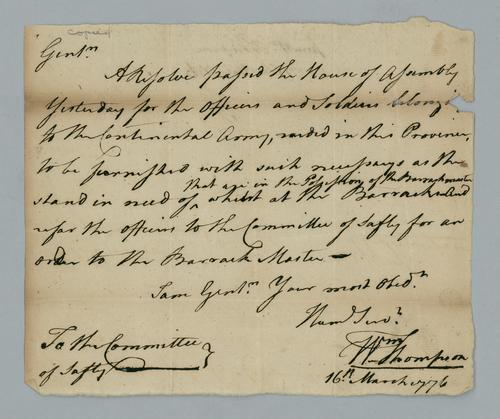 copied
Gentn
A Resolve passed the House of Assembly
Yesterday for the Officers and Soldiers belongi
to the Continental Army, raised in this Province,
to be furnished with such necessarys as the
that are in the Possession of the Barrackmaster
stand in need of ^ whilst at the Barracks and
refer the officers to the Committee of Safty for an
order to the Barrack Master —
I am Gentn Your most Obedt
Humb Servt
Wm Thompson
16th March 1776
To the Committee
of Safty